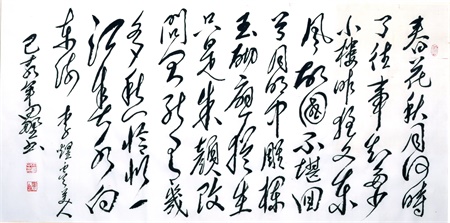 春花秋月何時
了往事知多少
小樓昨夜又東
風故國不堪回
首月明中雕欄
玉砌應猶在
只是朱顏改
問君能有幾
多愁恰似一
江春水向
東流 李煜虞美人
己亥年書